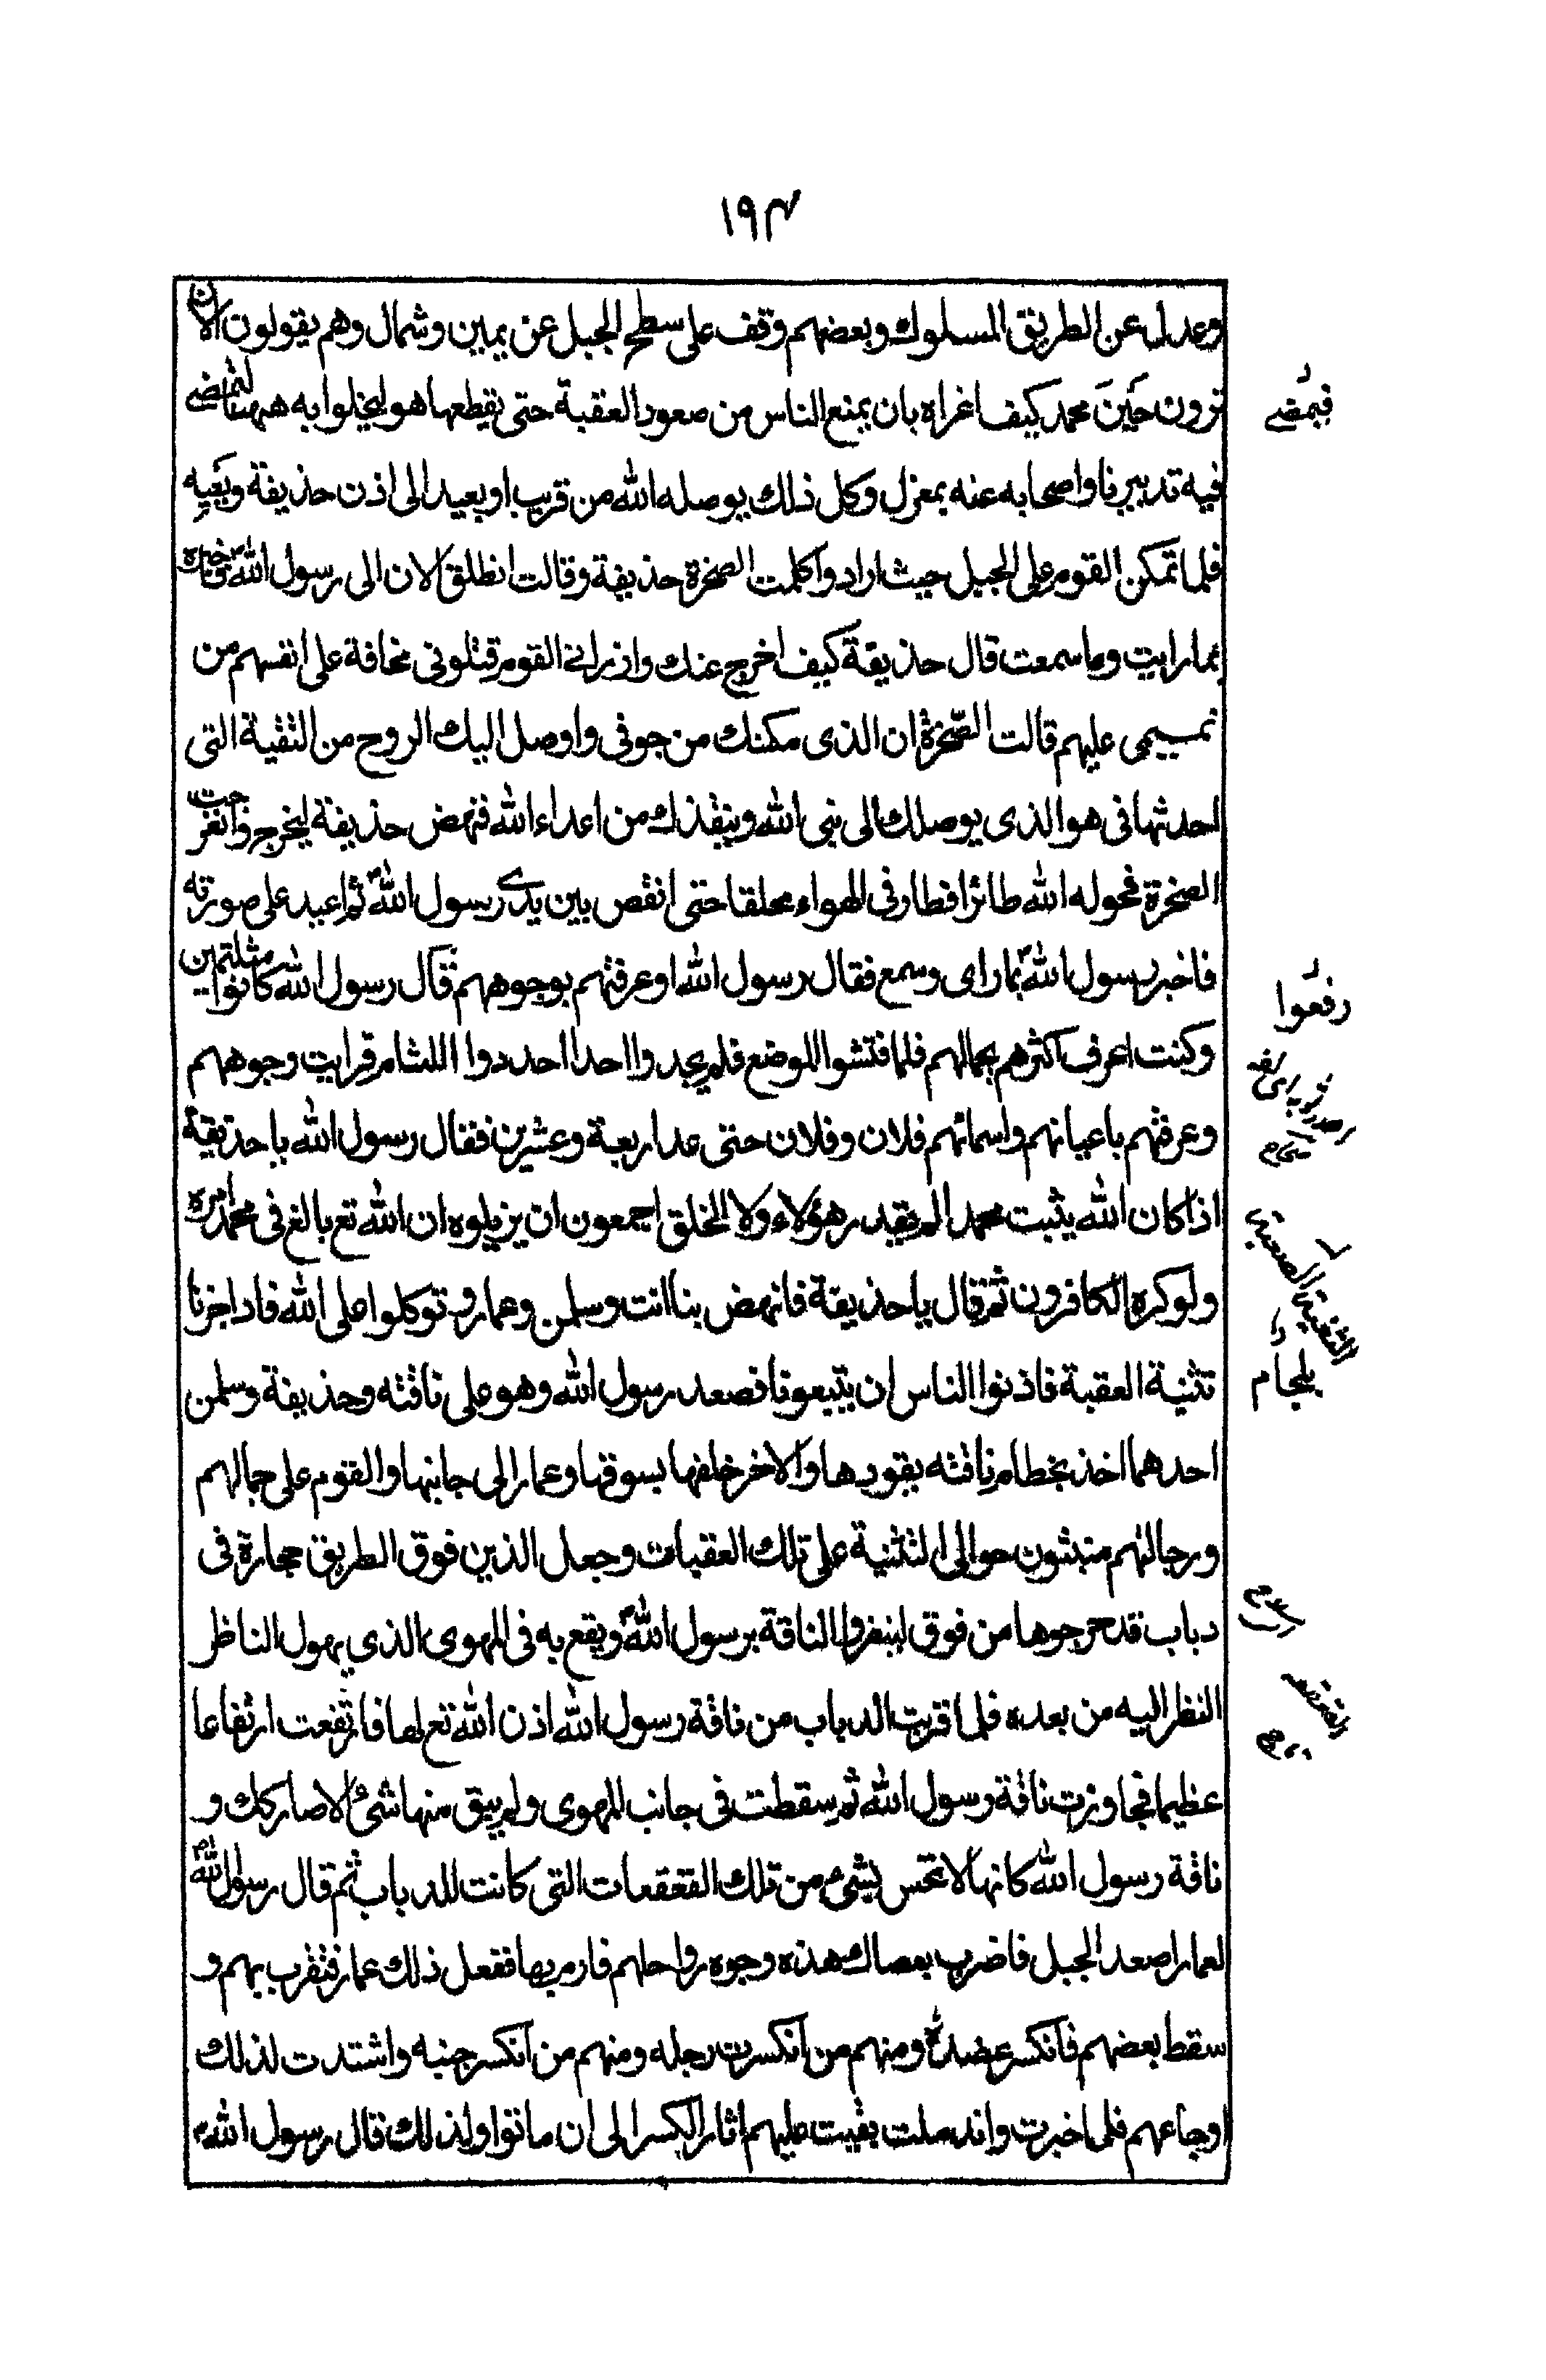 ١٩٣
وعدل عن الطريق المسلوك وبعضهم وقف على سطح الجبل عن يمين وشمال وهم يقولون الان
ترون حَيَنَ محمد كيف اغراه بان يمنع الناس من صعود العقبة حتى يقطعها هو ليخلوا به ههنا لتمضى
فيه تدبيرنا واصحابه عنه بمعزل وكل ذلك يوصله الله من قريب او بعيد الى اذن حذيفة ويَعِيه
فلما تمكن القوم على الجبل حيث ارادوا كلمت الصخرة حذيفة وقالت انطلق الان الى رسول الله فاخبره
بما رايت وما سمعت قال حذيفة كيف اخرج عنك وان رانى القوم قتلونى مخافة على انفسهم من
نميمى عليهم قالت الصّخرة ان الذى مكنك من جوفى واوصل اليك الروح من الثقبة التى
احدثها فى هو الذى يوصلك الى نبى الله وينقذك من اعداء الله فنهض حذيفة ليخرج وانفرجت
الصخرة فحوله الله طائرا فطار فى الهواء محلقا حتى انقض بين يدى رسول الله ثم اعيد على صورته
فاخبر رسول الله بما راى وسمع فقال رسول الله اوعرفتهم بوجوههم قال رسول الله كانوا متلثمين
وكنت اعرف اكثرهم بجمالهم فلما فتشوا الموضع فلم يجدوا احدا احددوا اللثام فرايت وجوههم
وعرفتهم باعيانهم واسمائهم فلان وفلان حتى عد اربعة وعشرين فقال رسول الله يا حذيفة
اذا كان الله يثبت محمدا لم يقدر هؤلاء ولا الخلق اجمعون ان يزيلوه ان الله تع بالغ فى محمد امره
ولو كره الكافرون ثم قال يا حذيفة فانهض بنا انت وسلمن وعمار وتوكلوا على الله فاذا جزنا
تثنية العقبة فاذنوا الناس ان يتبعونا فصعد رسول الله وهو على ناقته وحذيفة وسلمن
احدهما اخذ بخطام ناقته يقودها والاخر خلفها يسوقها وعمار الى جانبها والقوم على جمالهم
ورجالتهم منبثون حوالى الثثنية على تلك العقبات وجعل الذين فوق الطريق حجارة فى
دباب فدحرجوها من فوق لينفروا الناقة برسول الله ويقع به فى المهوى الذى يهول الناظر
النظر اليه من بعده فلما قربت الدباب من ناقة رسول الله اذن الله تع لها فارتفعت ارتفاعا
عظيما فجاوزت ناقة رسول الله ثم سقطت فى جانب المهوى ولم يبق منها شئ الا صار كك و
ناقة رسول الله كانها لا تحس بشئ من تلك القعقعات التى كانت للدباب ثم قال رسول الله
لعمار اصعد الجبل فاضرب بعصاك هذه وجوه رواحلهم فارم بها ففعل ذلك عمار فنفرت بهم و
سقط بعضهم فانكسر عضده ومنهم من انكسرت رجله ومنهم من انكسر جنبه واشتدت لذلك
اوجاعهم فلما اخبرت واندملت بقيت عليهم اثار الكسر الى ان ماتوا ولذلك قال رسول الله
فيمضى
رفعوا
بلجام